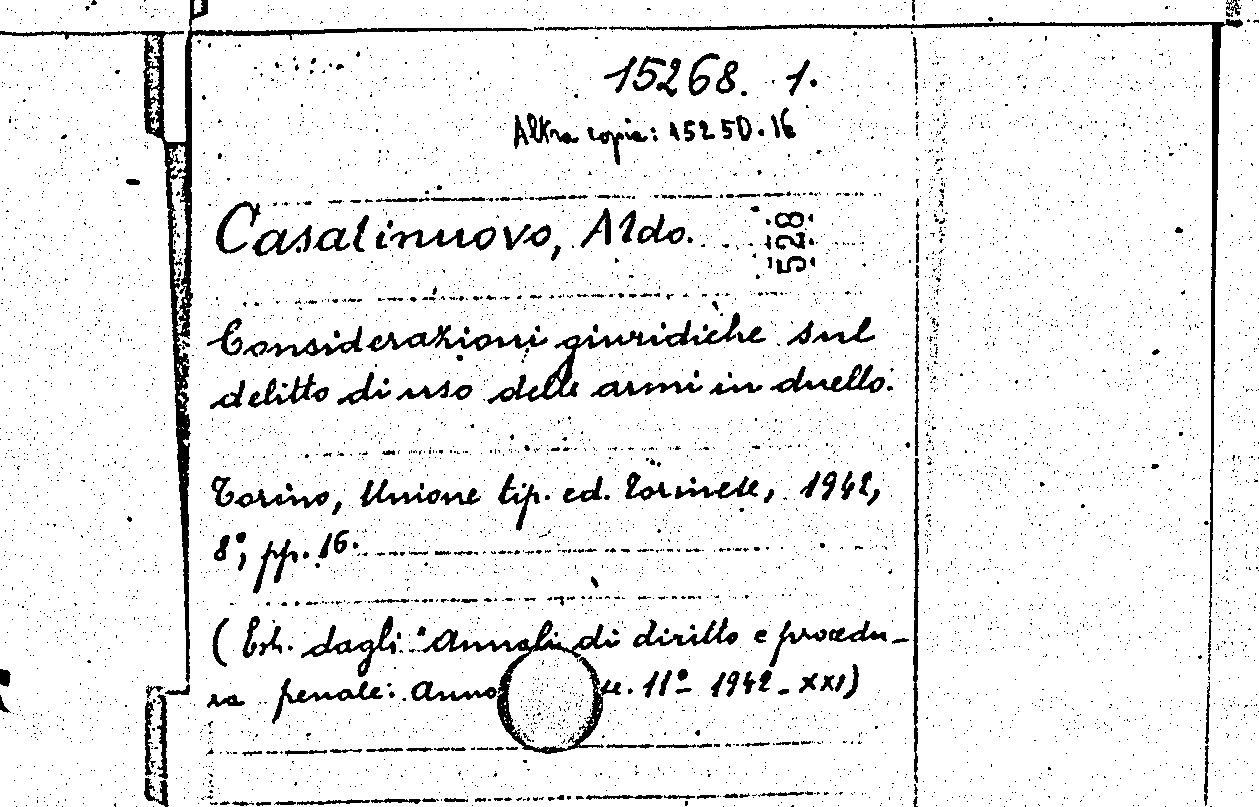 15268. 1.
Altra copia: 15250.16
Casalinuovo, Aldo.
528
Considerazioni giuridiche sul
delitto di uso delle armi in duello.
Torino, Unione tip. ed. Torinese, 1942,
8°, pp. 16.
(Estr. dagli "Annali di diritto e procedu-
ra penale: Anno 11° 1942-XXI)